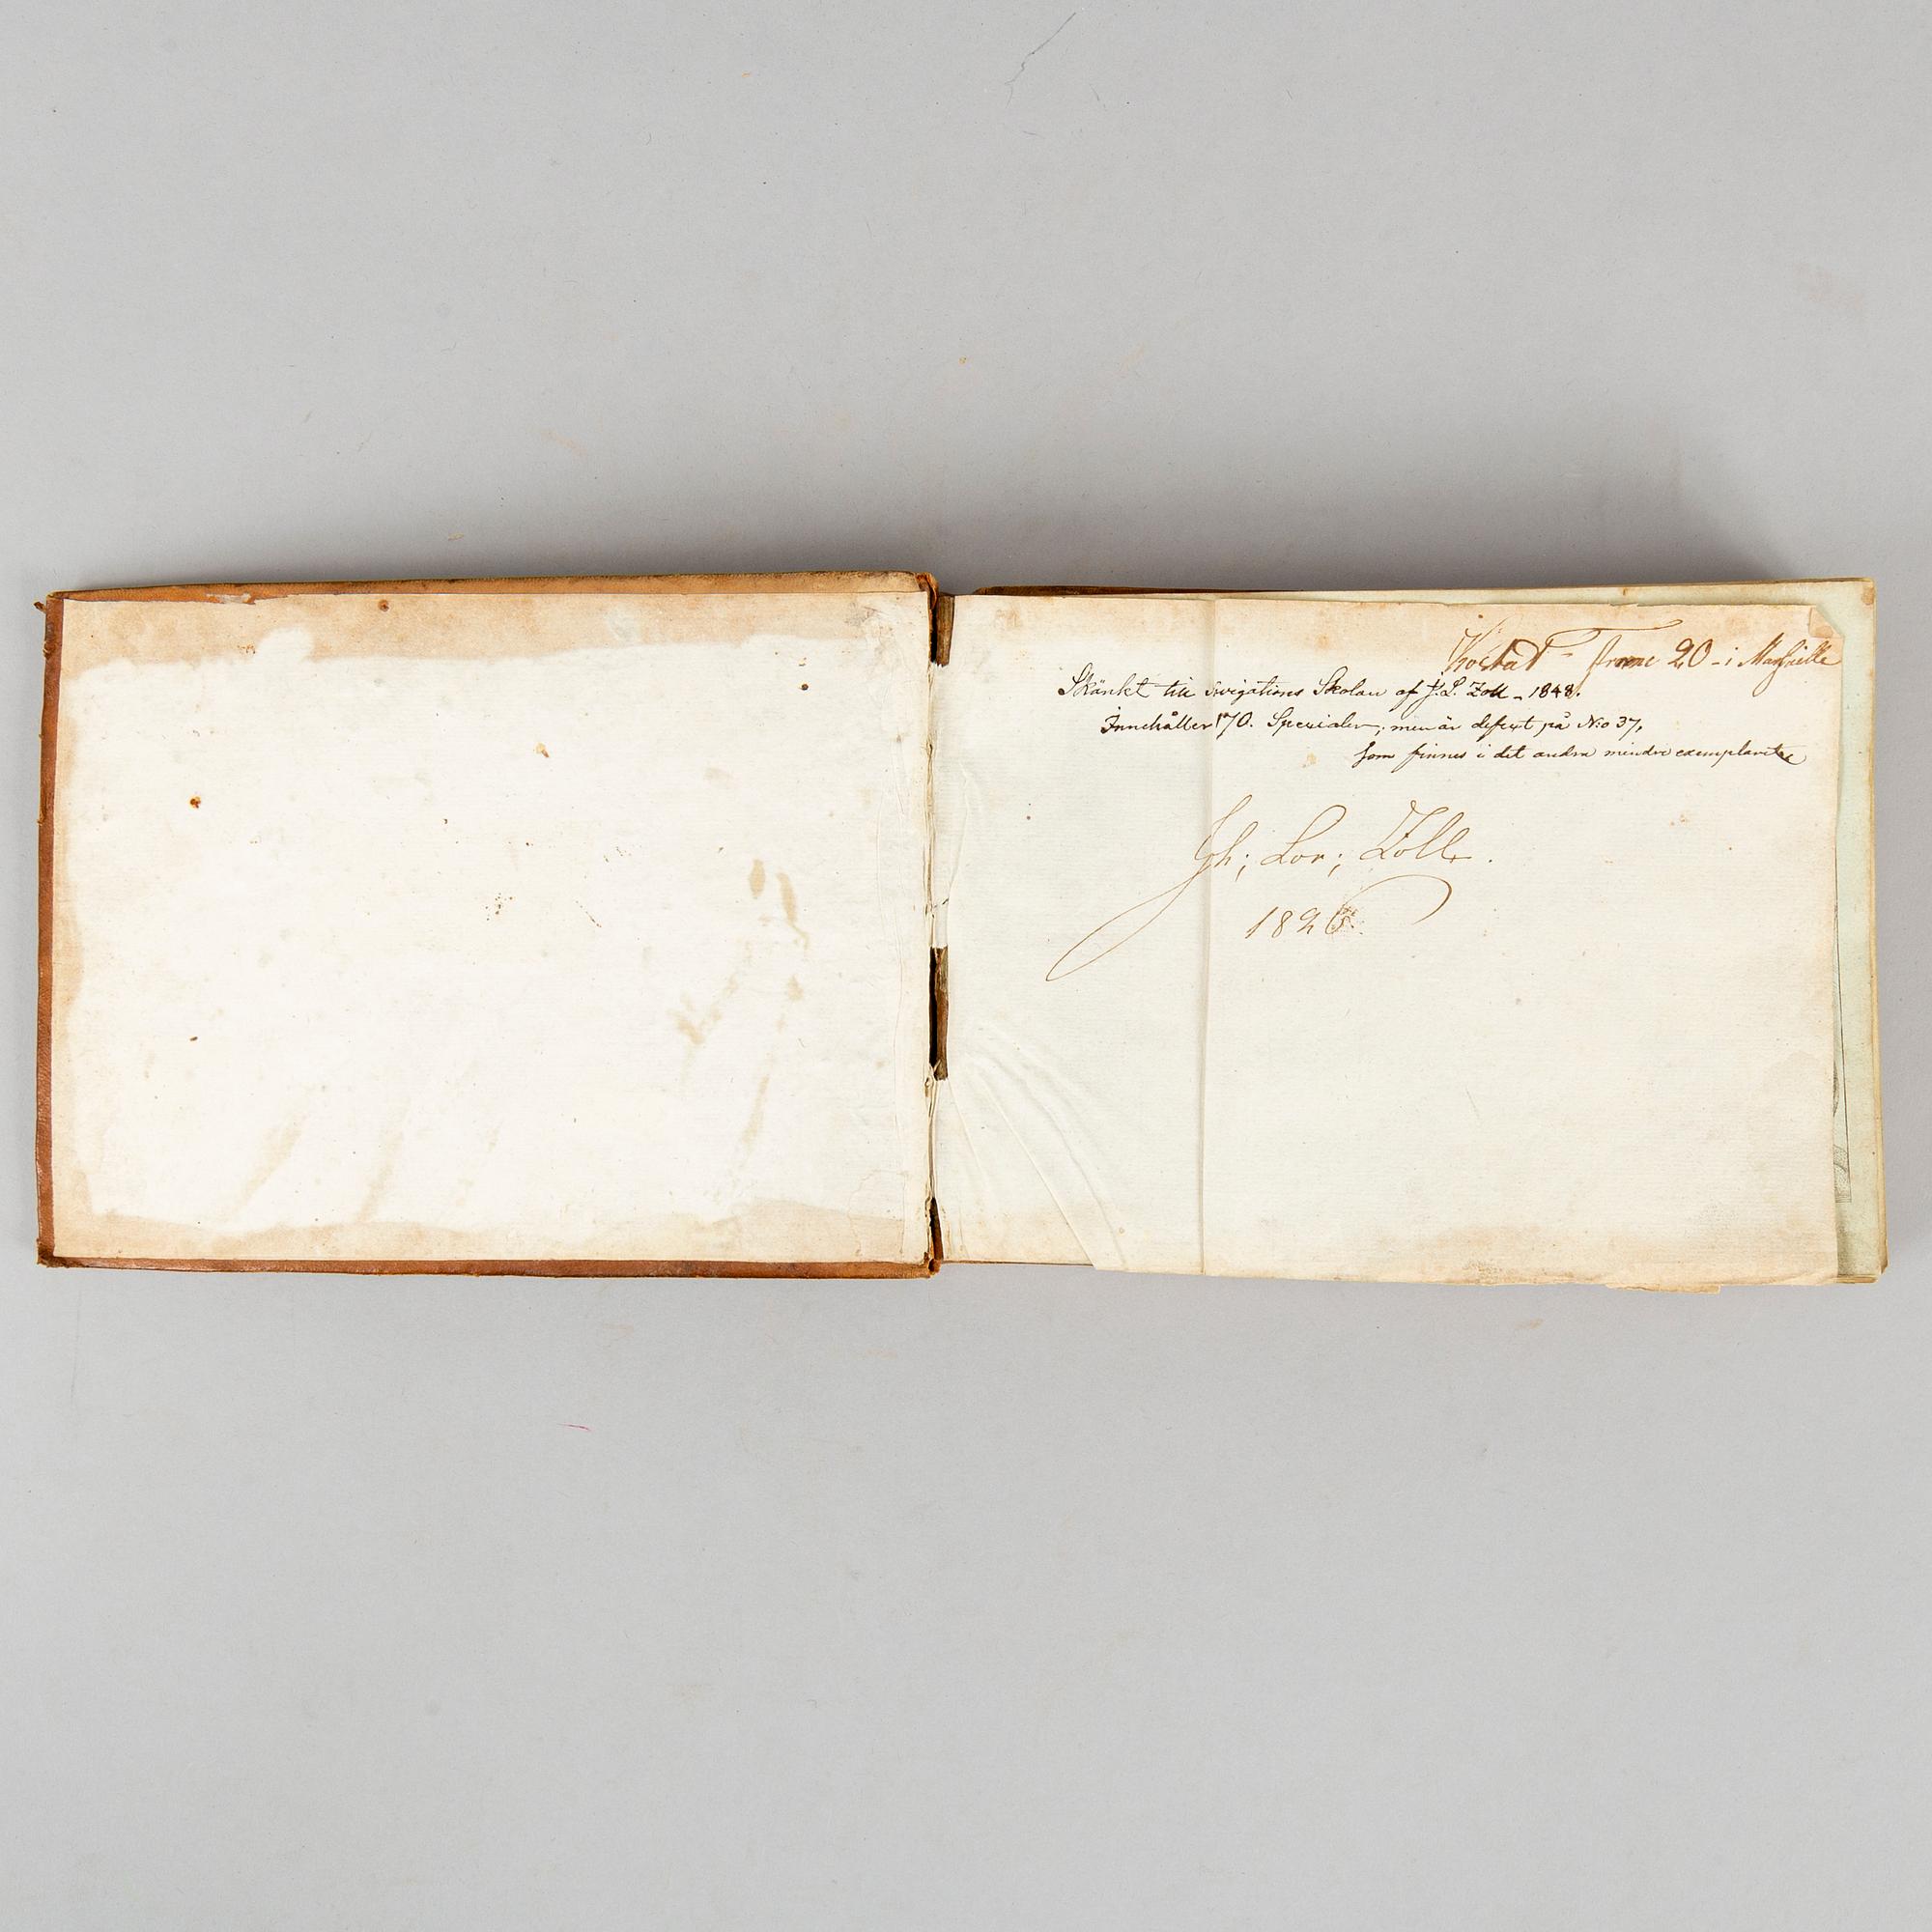 Kostad Franc 20 - i Marseille
Skänkt till Navigations Skolan af J. L. Zoll - 1848.
Innehåller 170. Spezialer, men är defect på N:o 37,
som finnes i det andra mindre exemplaret
Jh; Lor; Zoll.
1826.